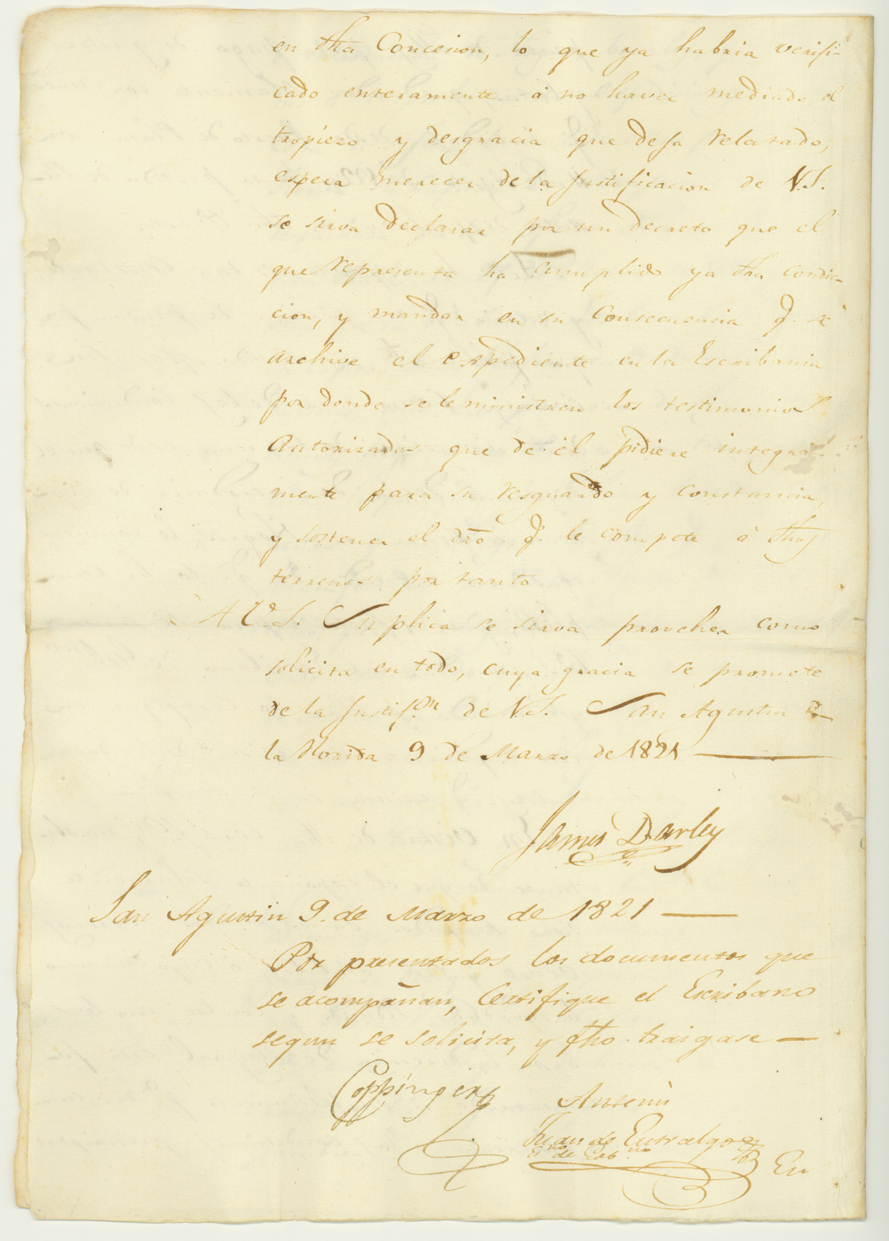 en dha Concesion, lo que ya habria verifi-
cado enteramente á no haver mediado el
tropiezo y desgracia que deja relatado,
espera merecer de la Justificacion de V.S.
se sirva declarar por un decreto que el
que representa ha cumplido ya dha condi-
cion, y mandar en su Consecuencia q.e se
archive el expediente en la Escribania
por donde se le ministren los testimonios
Autorizados que de él pidiere integra-
mente para su resguardo y constancia,
y sostener el dro q.e le compete á dhos
terrenos por tanto
A V.S. Suplica se sirva proveher como
solicita en todo, cuya gracia se promete
de la Justif.on de V.S. San Agustin de
la Florida 9 de Marzo de 1821
James Darley
San Agustin 9. de Marzo de 1821
Por presentados los documentos que
se acompañan, Certifique el Escribano
segun se solicita, y fho. traigase
Coppinger
Antemi
Juan de Entralgo
Es.no de Gob.no
En